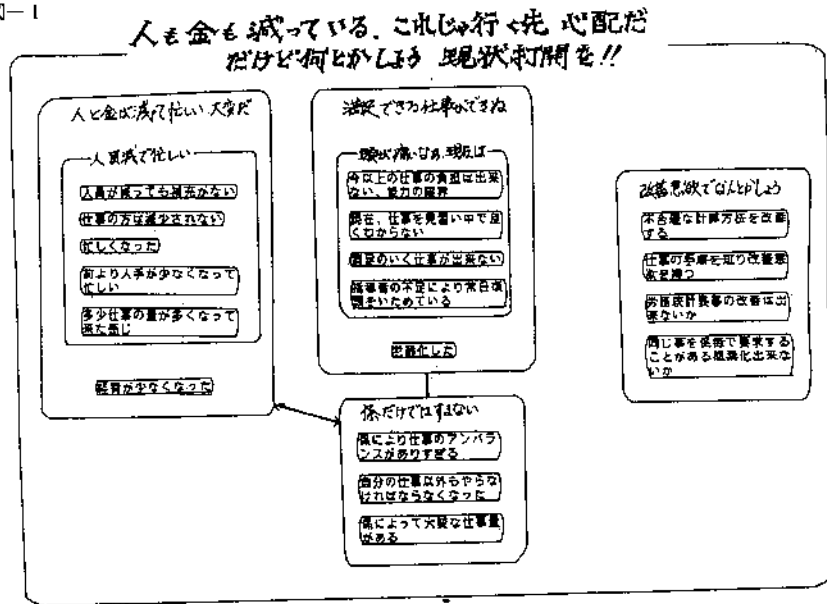 図－1
人も金も減っている、これじゃ行く先 心配だ
だけど何とかしよう 現状打開を!!
人と金が減って忙しい 大変だ
人員減で忙しい
人員が減っても補充がない
仕事の方は減少されない
忙しくなった
前より人手が少なくなって
忙しい
多少仕事の量が多くなって
来た感じ
経費が少なくなった
満足できる仕事ができぬ
頭が痛いなあ、現在は
今以上の仕事の負担は出来
ない、能力の限界
現在、仕事を見習い中で良
くわからない
満足のいく仕事が出来ない
指導書の不足により常日頃
頭をいためている
老齢化した
係だけではすまない
係により仕事のアンバラ
ンスがありすぎる
自分の仕事以外もやらな
ければならなくなった
係によって大変な仕事量
がある
改善意欲でなんとかしよう
不合理な計算方法を改善
する
仕事の手順を知り改善意
欲を持つ
統計表等の改善は出
来ないか
同じ事を係毎で要求する
ことがある 出来な
いか